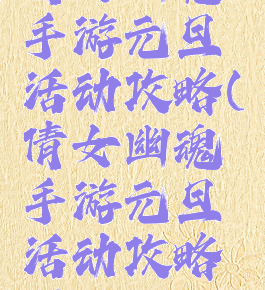 手游元旦
活动攻略(
倩女幽魂
手游元旦
活动攻略